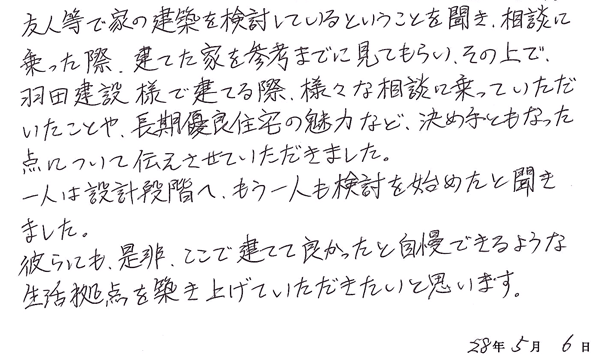 友人等で家の建築を検討しているということを聞き、相談に
乗った際、建てた家を参考までに見てもらい、その上で、
羽田建設様で建てる際、様々な相談に乗っていただ
いたことや、長期優良住宅の魅力など、決め手ともなった
点について伝えさせていただきました。
一人は設計段階へ、もう一人も検討を始めたと聞き
ました。
彼らにも、是非、ここで建てて良かったと自慢できるような
生活拠点を築き上げていただきたいと思います。
28年5月6日